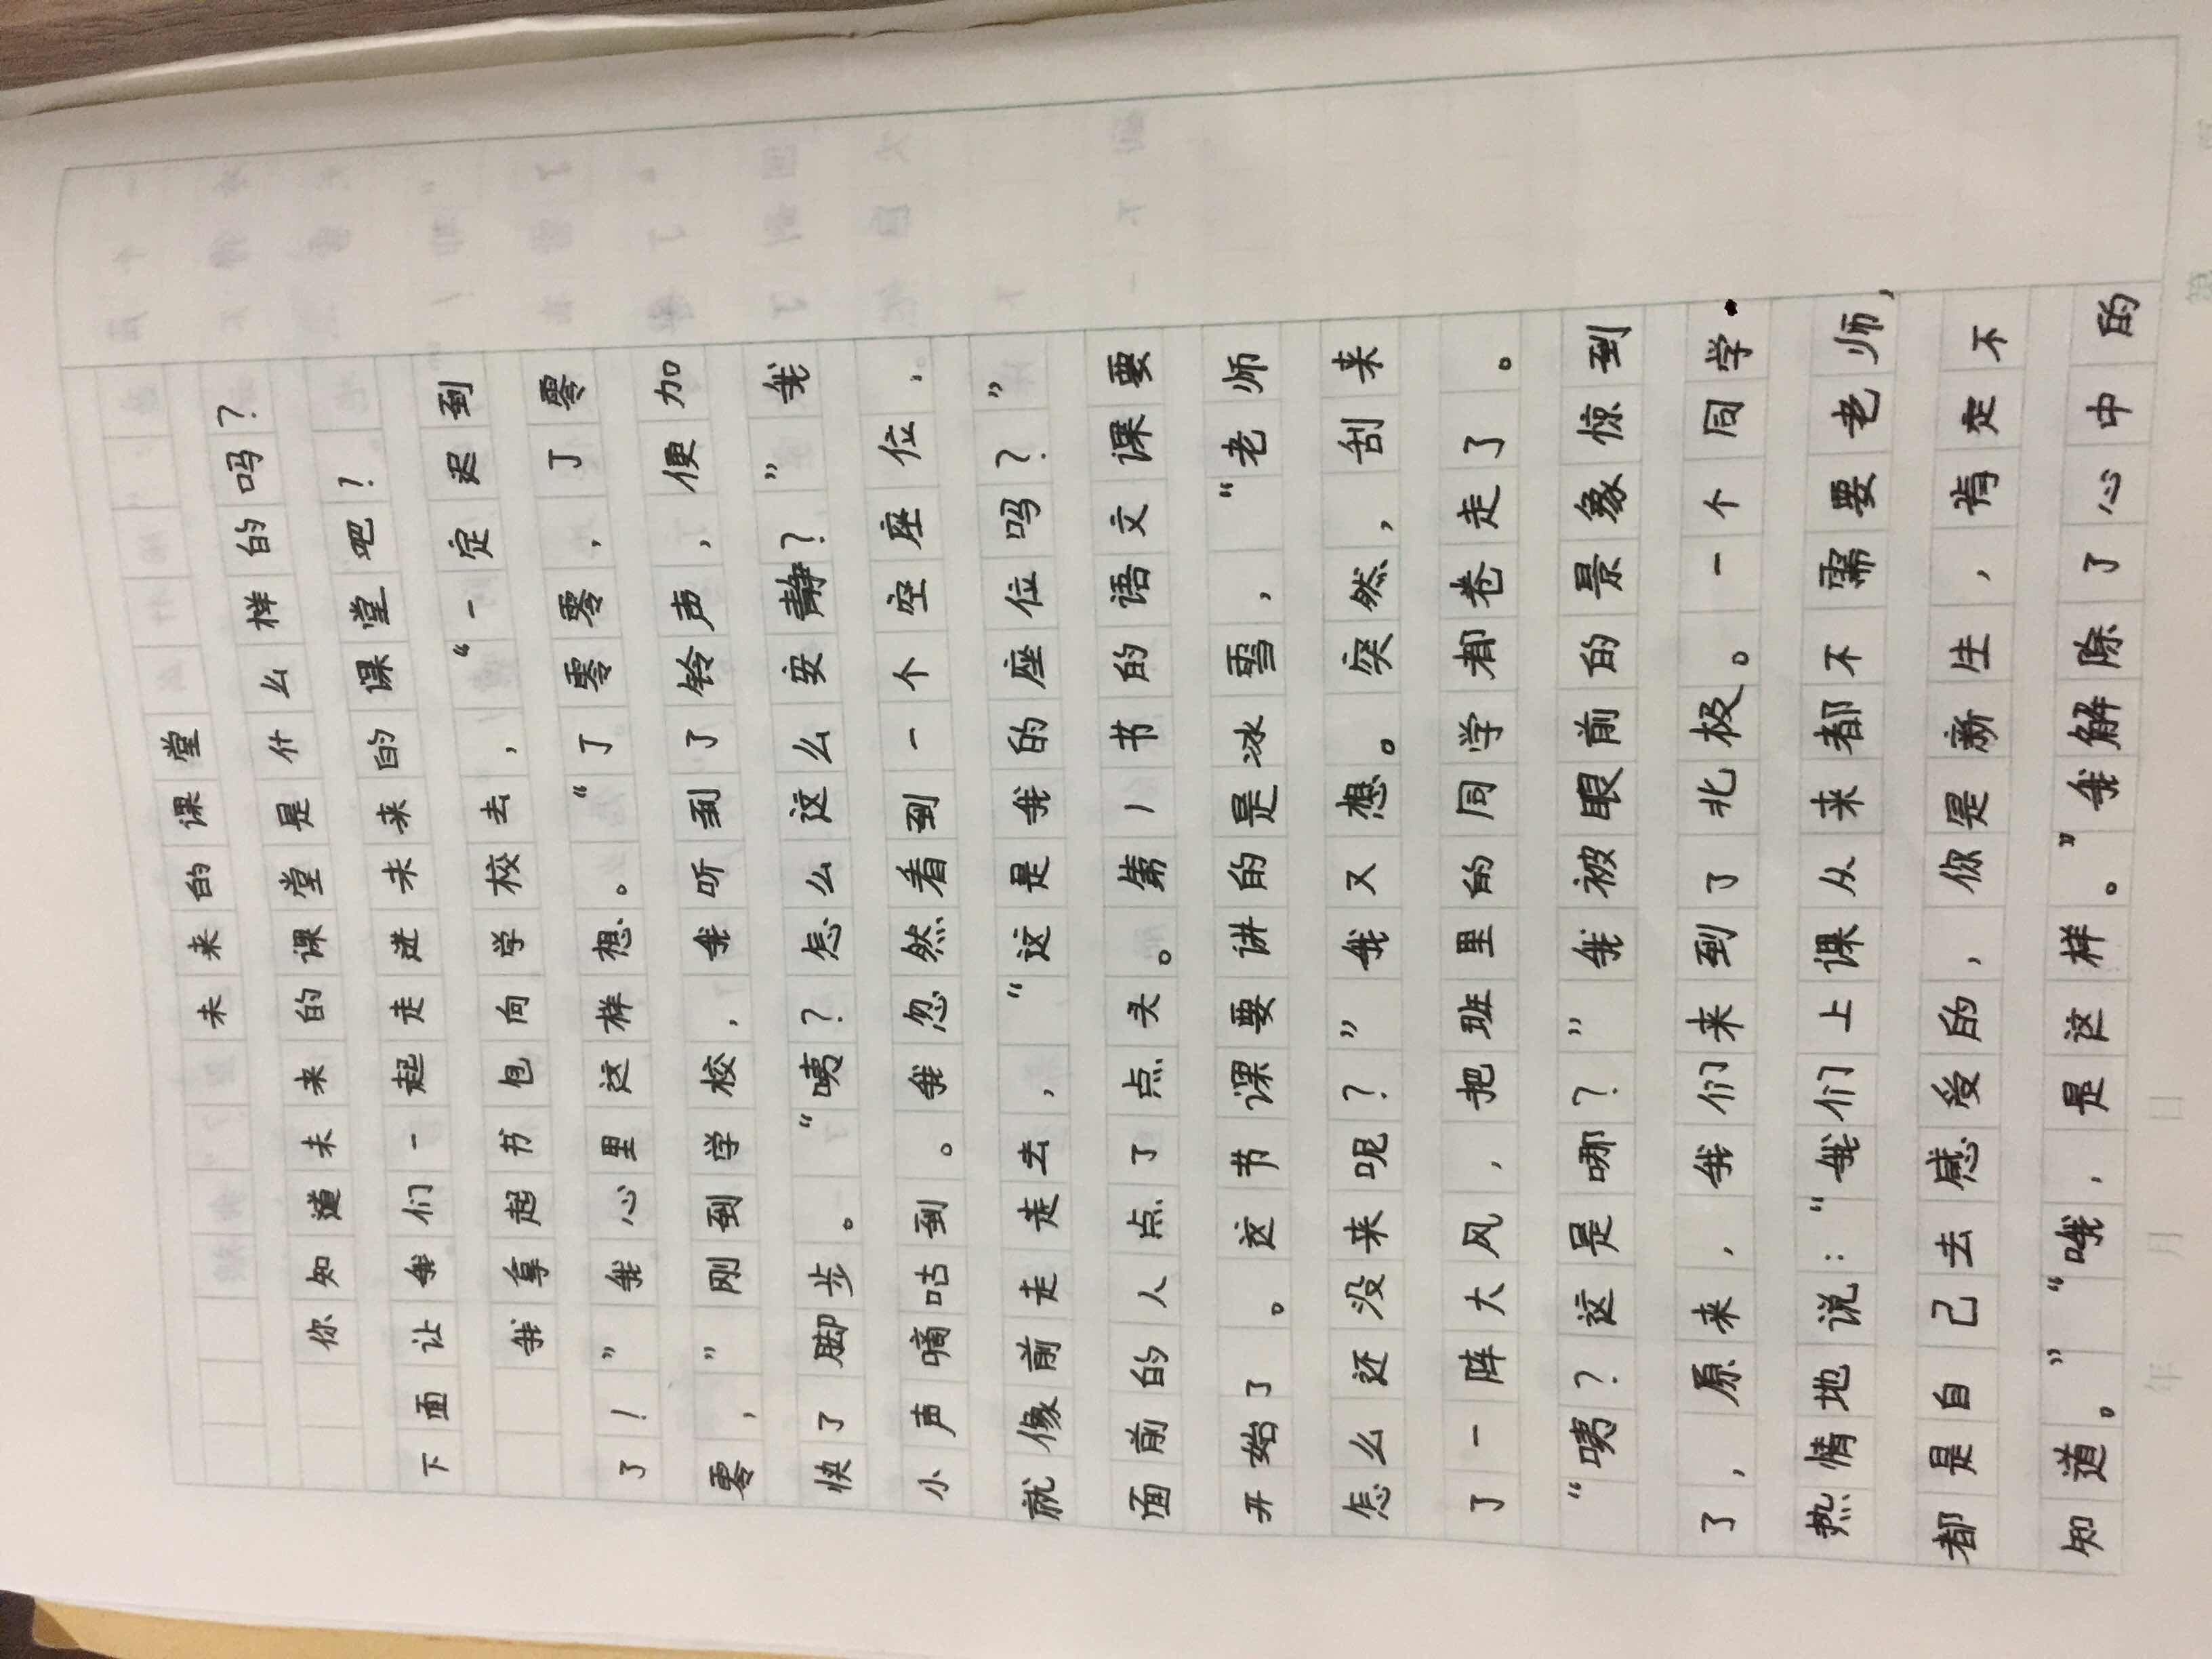 未来的课堂
你知道未来的课堂是什么样的吗？
下面让我们一起走进未来的课堂吧？
我拿起书包向学校去，“一定迟到
了！”我心里这样想。“丁零零，丁零
零，”刚到学校，我听到了铃声，便加
快了脚步。“咦？怎么这么安静？”我
小声嘀咕到。我忽然看到一个空座位，
就像前走走去，“这是我的座位吗？”
面前的人点了点头。第一书的语文课要
开始了。这节课要讲的是冰雪，“老师
怎么还没来呢？”我又想。突然，刮来
了一阵大风，把班里的同学都卷走了。
“咦？这是哪？”我被眼前的景象惊到
了，原来，我们来到了北极。一个同学
热情地说：“我们上课从来都不需要老师，
都是自己去感受的，你是新生，肯定不
知道。”“哦，是这样。”我解除了心中的
年 月 日